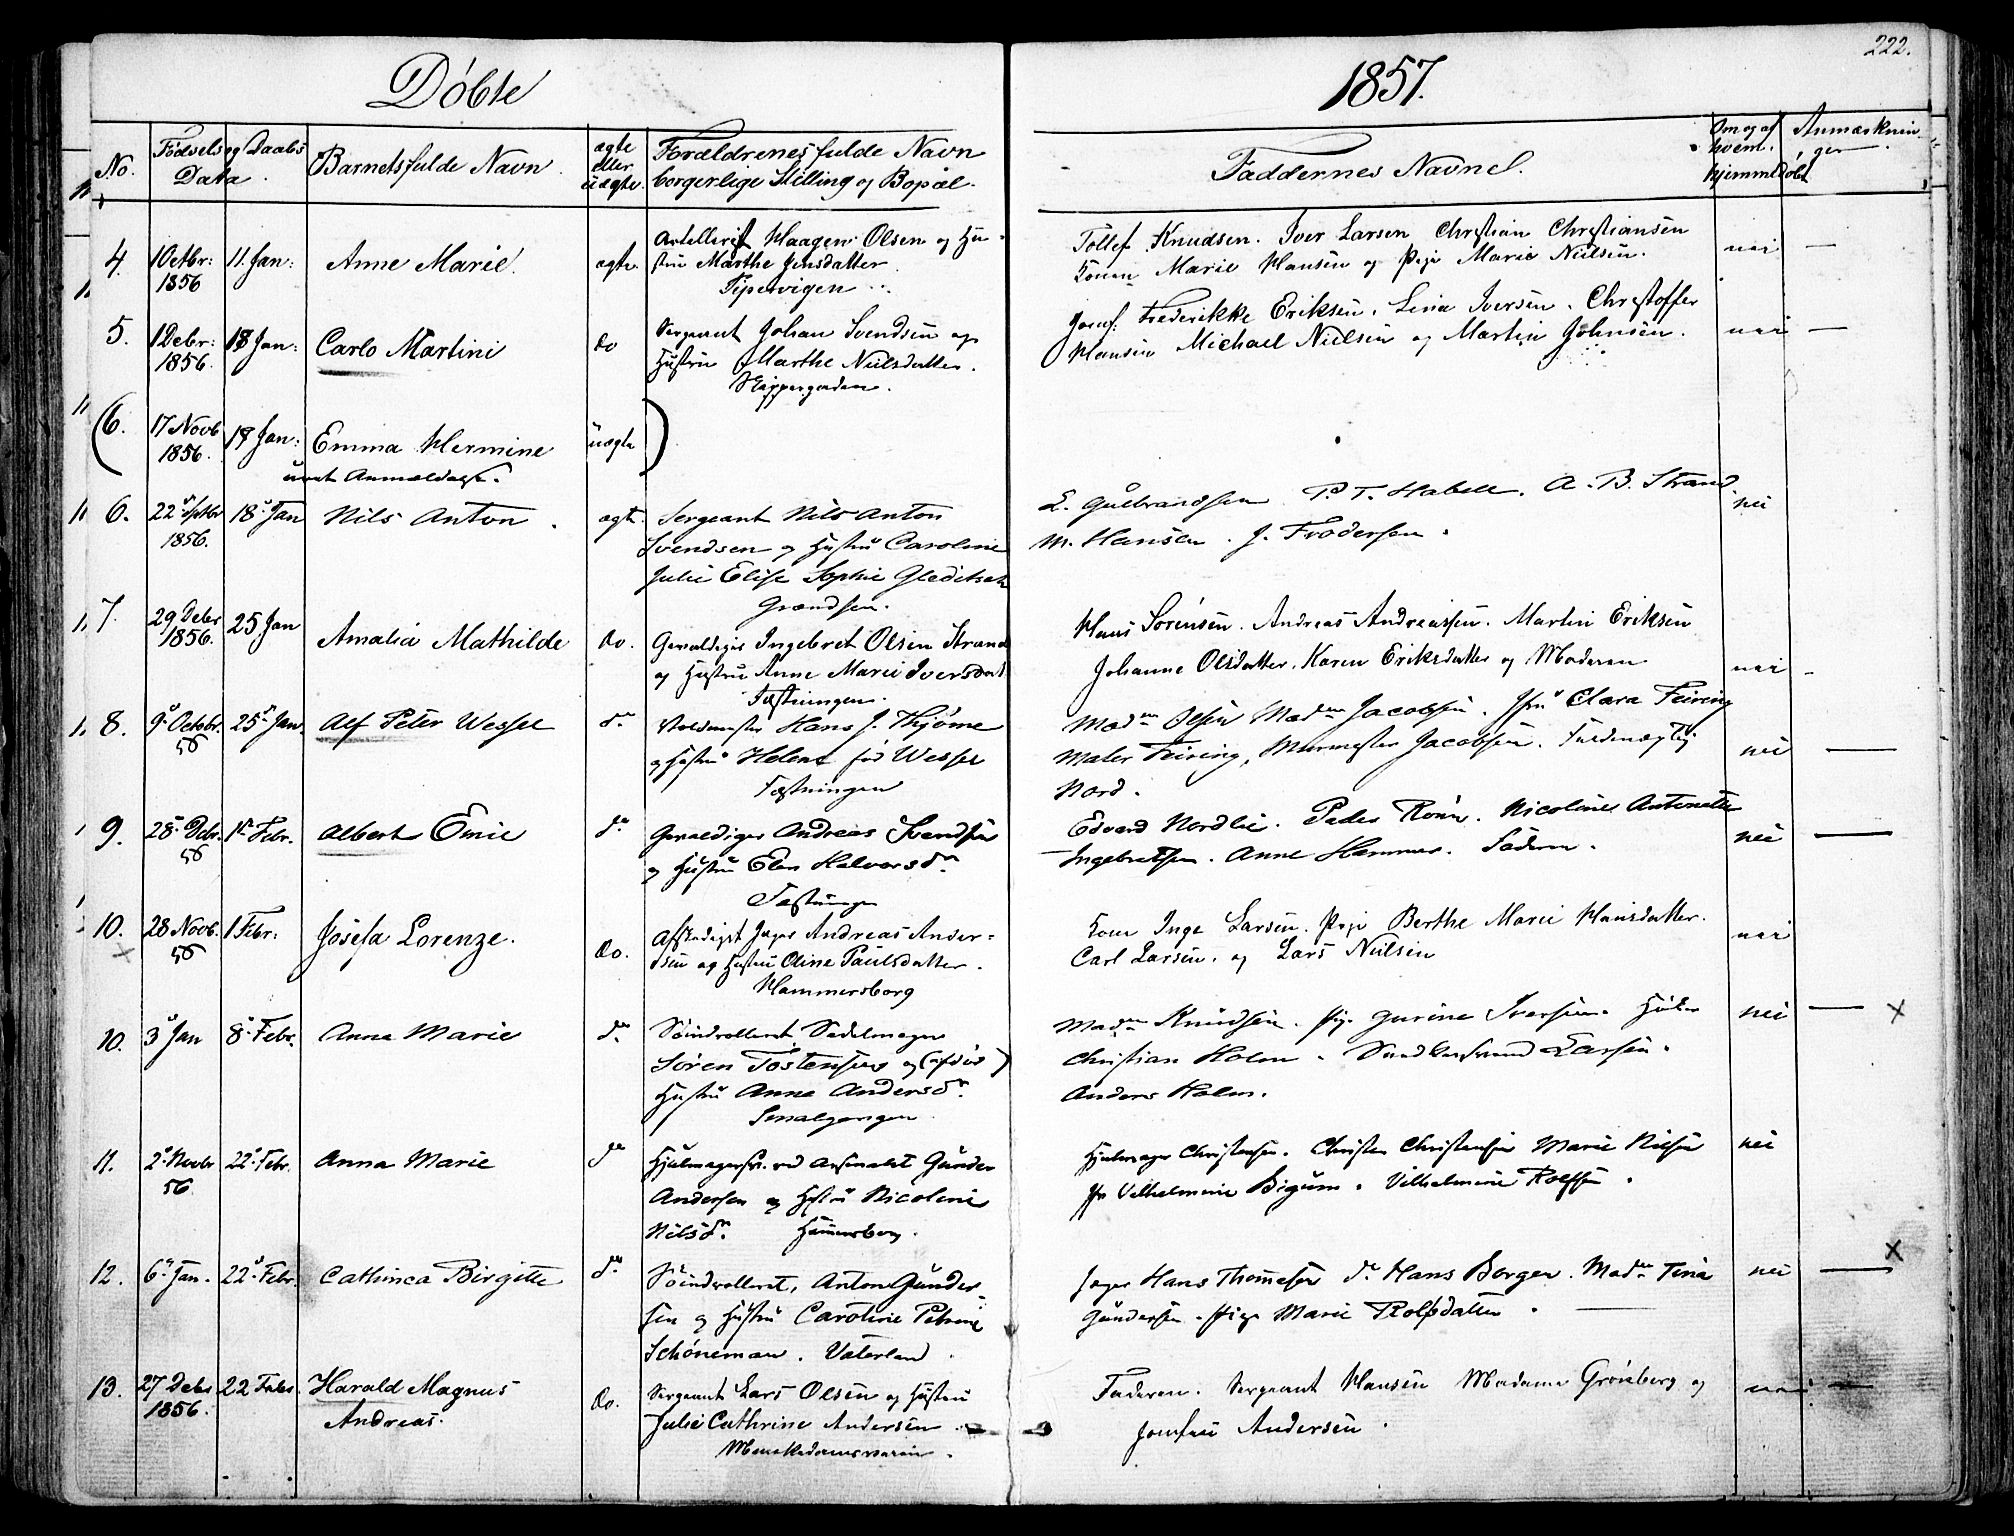 222.
Döbte 1857.
No. Födsels og Daabs Data. Barnets fulde Navn ægte eller uægte. Forældrenes fulde Navn borgerlige Stilling og Bopæl. Faddernes Navne. Om og af hvem hjemmedöbt Anmærkninger.
4. 1 Octbr: 1856 11 Jan: Anne Marie. ægte.
Artellerist Haagen Olsen og Hu-
stru Marthe Jensdatter
Pipervigen
Tollef Knudsen. Iver Larsen Christian Christiansen
Konen Marie Hansen og Pige Marie Nielsen. nei —
5. 1 Debr: 1856. 18 Jan: Carlo Martini do
Sergeant Johan Svendsen og
Hustru Marthe Nielsdatter.
Skippergaden.
Jomf: Frederikke Eriksen. Lina Iversen. Christoffer
Hansen Michael Nielsen og Martin Johnsen. nei —
(6. 17 Novb 1856. 18 Jan: Emma Hermine uægte )
Anmeldelse.
6. 22 Septbr 1856. 18 Jan Nils Anton ægte.
Sergeant Nils Anton
Svendsen og Hustru Caroline
Julie Elise Sophie Gleditsch
Grændsen.
L. Gulbrandsen P. T. Habell. A. B. Strand
M. Hansen. J. Frodersen. nei
7. 29 Debr 1856. 25 Jan Amalia Mathilde do.
Gevaldiger Ingebret Olsen Strand
og Hustru Anne Marie Iversdat
Fæstningen.
Hans Sörensen. Andreas Andreassen. Martin Eriksen
Johanne Olsdatter. Karen Eriksdatter og Moderen nei
8. 9 Octobr. 56 25 Jan. Alf Peter Wessel do
Voldmester Hans J. Thjöme
og Hustru Helene föd Wessel
Fæstningen
Madm Olsen Madm Jacobsen. Jfru Clara Feiring
Maler Feiring, Murmester Jacobsen. Fuldmægtig
Nord. nei —
9. 28 Debr. 56 1 Febr. Albert Emil do
Gevaldiger Andreas Svendsen
og Hustru Elen Halvorsdr
Fæstningen
Edvard Nordlie. Peder Rönn. Nicoline Antonette
Ingebretsen. Anne Hammer. Faderen. nei —
10. 28 Novb. 56 1 Febr: Josefa Lorenze. do.
Afskediget Jæger Andreas Ander-
sen og Hustru Oline Paulsdatter.
Hammersborg
Kone Inge Larsen. Pige Berthe Marie Hansdatter.
Carl Larsen. og Lars Nielsen nei
10. 3 Jan 8 Febr. Anna Marie do
Söindrolleret Sadelmager
Sören Tostensen og (afdöd)
Hustru Anne Andersdr.
Smalgangen
Madm Knudsen. Pige Gurine Iversen.
Christian Holm. Larsen.
Anders Holm. nei — x
11. 2 Novbr 56. 22 Febr. Anna Marie do
Hjulmagersv. ved Arsenalet Gunder
Andersen og Hustru Nicoline
Nilsdr. Hammersborg.
Hjulmager Christensen. Christen Christensen Marie Nilsen
Vilhelmine Bigum. Vilhelmine Rolfsen. nei
12. 6 Jan. 22 Febr. Cathinca Birgitte do
Söindrolleret, Anton Gunder-
sen og Hustru Caroline Petrine
Schöneman. Vaterland.
Jæger Hans Thomesen do Hans Borger. Madm Tina
Gundersen. Pige Marie Rolfsdatter. nei — x
13. 27 Debr 1856. 22 Febr. Harald Magnus Andreas. do.
Sergeant Lars Olsen og Hustru
Julie Cathrine Andersen
Munkedamsveien.
Faderen. Sergeant Hansen Madame Grönberg og
Jomfru Andersen nei —